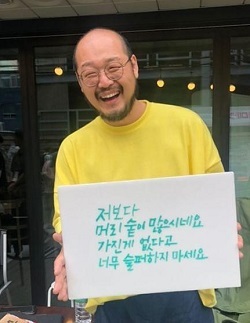 저보다
머리 숱이 많으시네요
가진게 없다고
너무 슬퍼하지 마세요